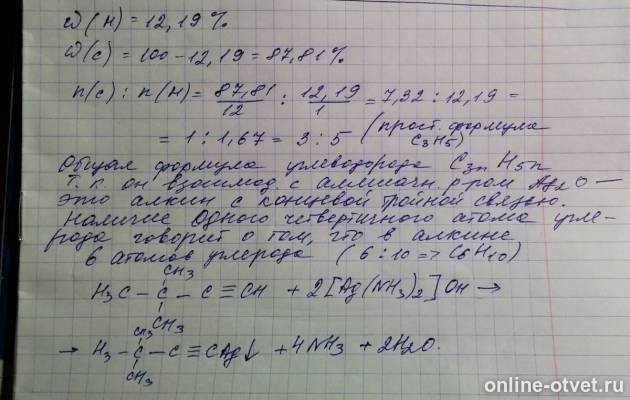 ω(H) = 12,19 %
ω(C) = 100 - 12,19 = 87,81 %
n(C) : n(H) = 87,81/12 : 12,19/1 = 7,32 : 12,19 =
= 1 : 1,67 = 3 : 5 (прост. формула C3H5)
Общая формула углеводорода C3nH5n
Т.к. он взаимод. с аммиачн. р-ром Ag2O —
это алкин с концевой тройной связью.
Наличие одного четвертичного атома угле-
рода говорит о том, что в алкине
6 атомов углерода (6 : 10 => C6H10)
CH3
H3C - C - C ≡ CH + 2[Ag(NH3)2]OH →
CH3
CH3
→ H3 - C - C ≡ CAg↓ + 4NH3 + 2H2O.
CH3
online-otvet.ru